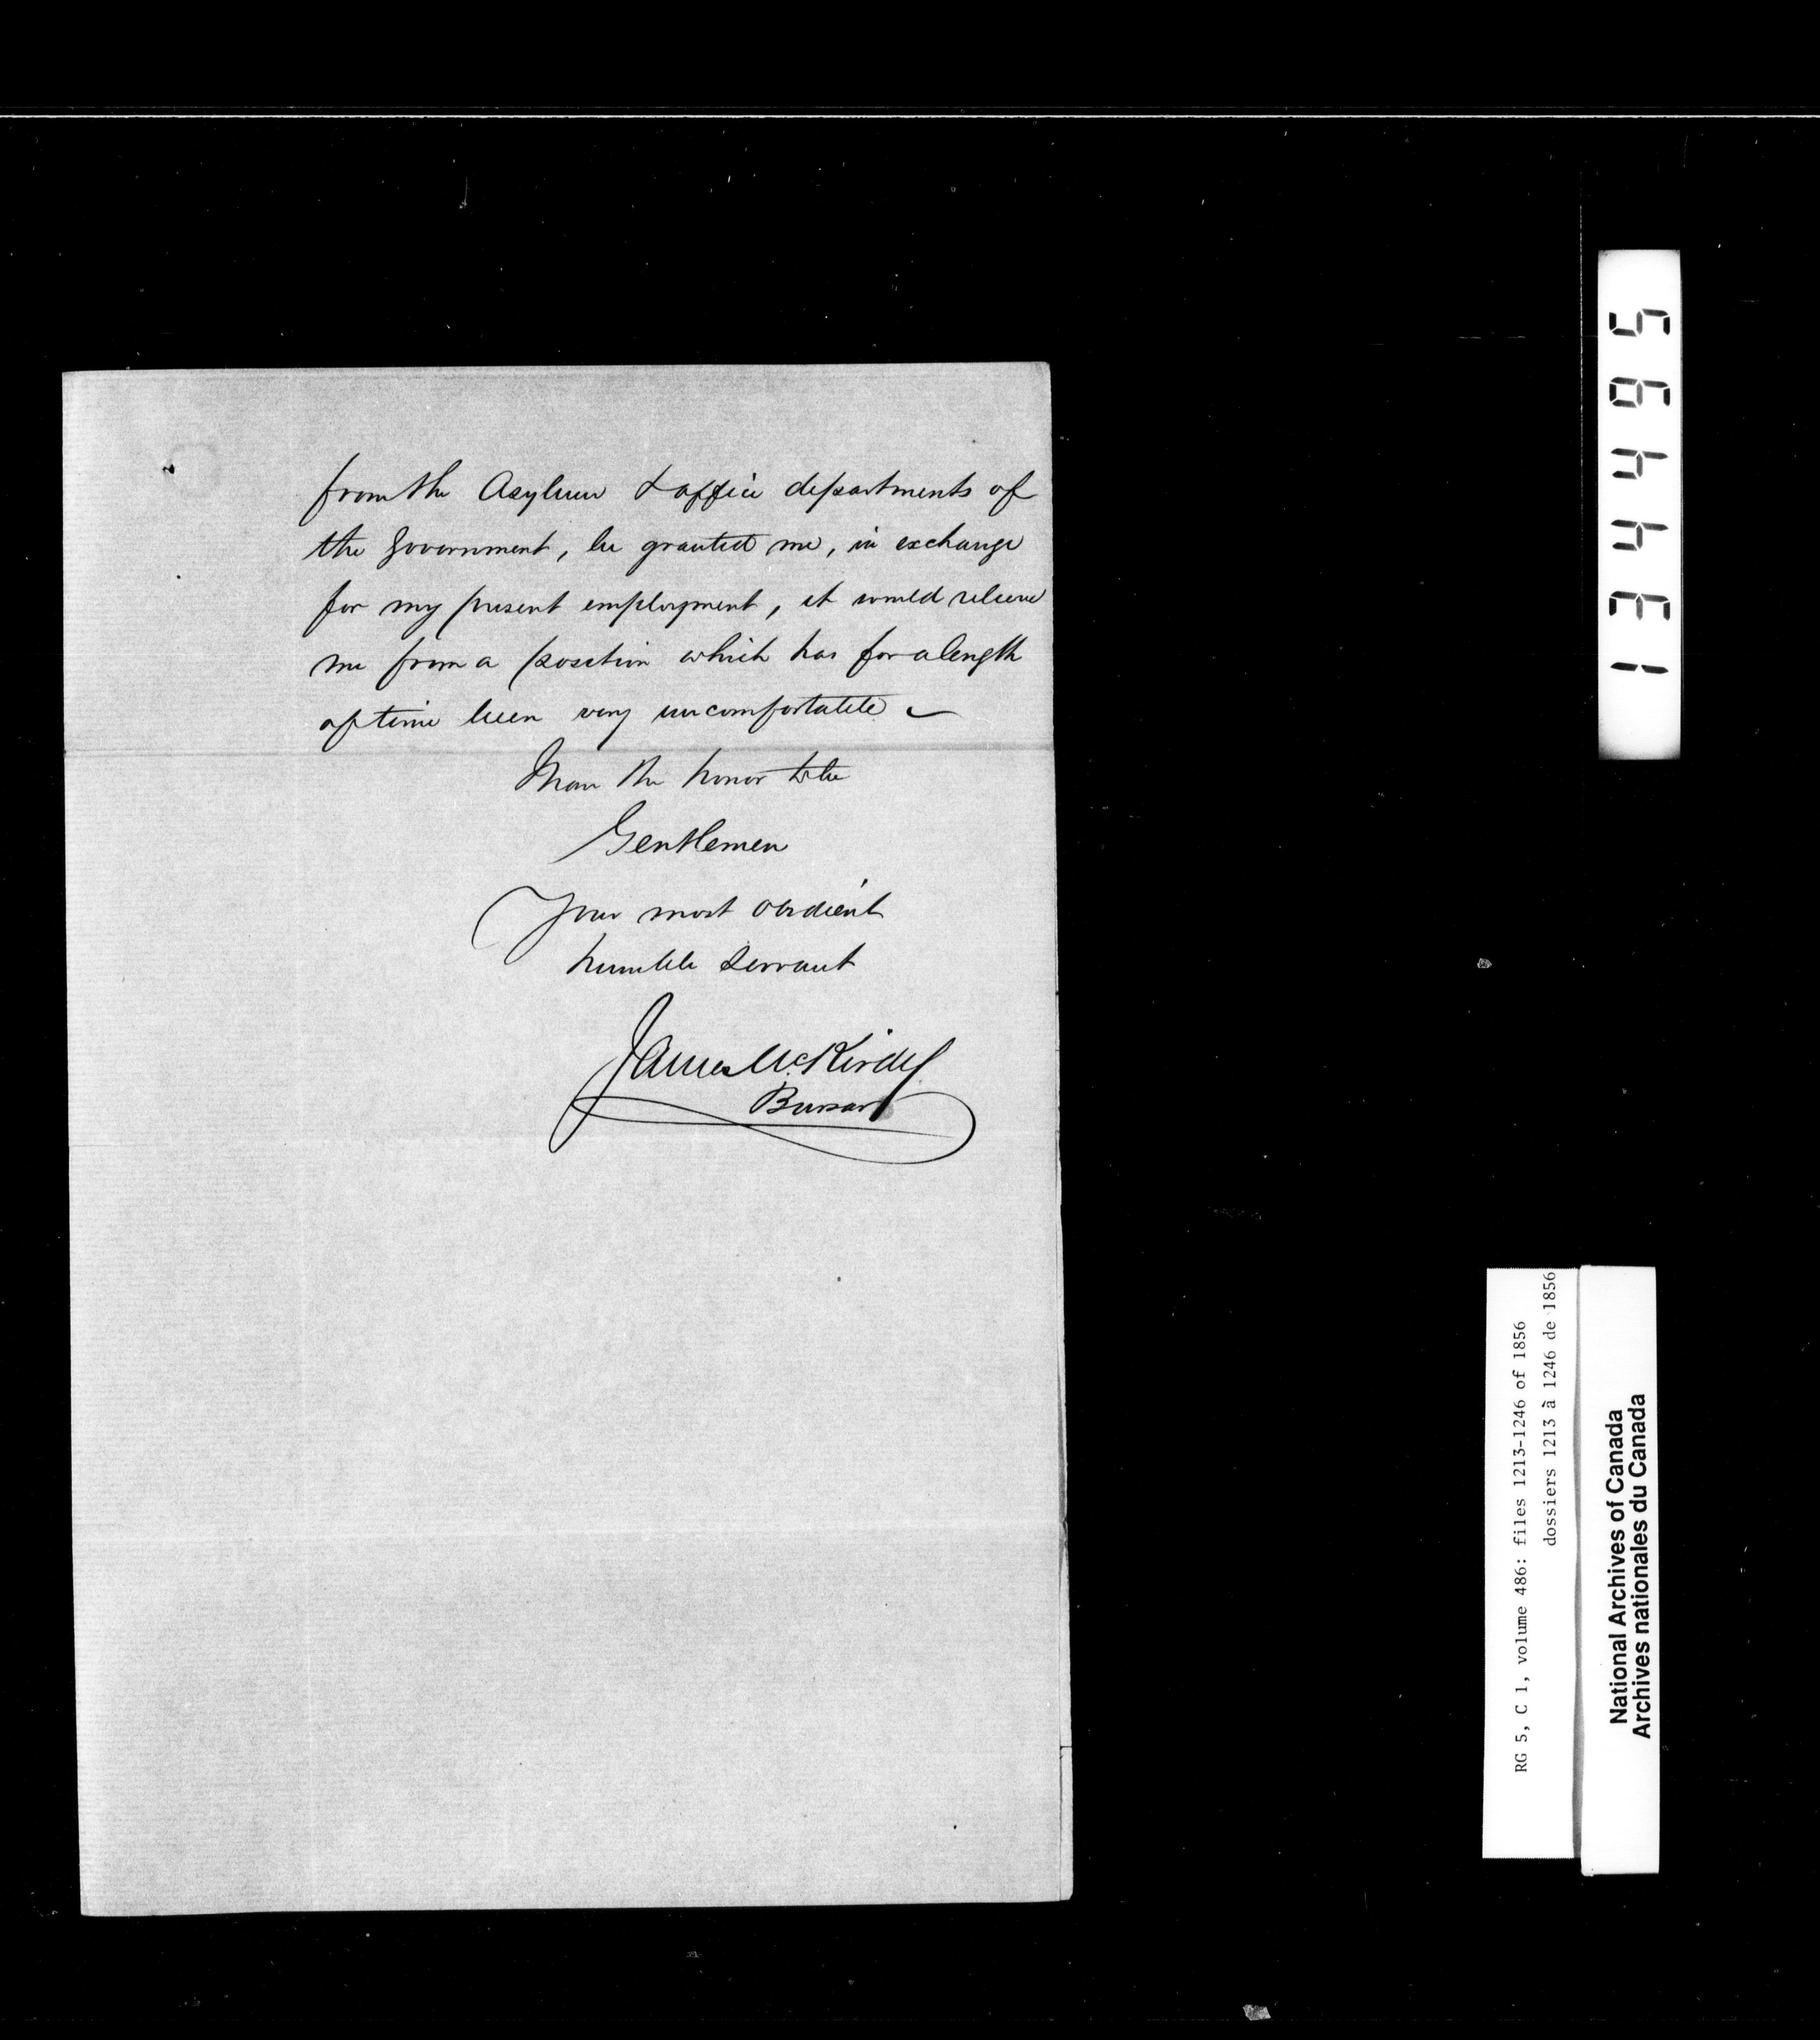 from the Asylum & office departments of
the Government, be granted me, in exchange
for my present employment, it would relieve
me from a position which has for a length
of time been very uncomfortable
I have the honor to be
Gentlemen
Your most obedient
humble servant
James McKirdy
Bursar
134495
RG 5, C 1, volume 486: files 1213-1246 of 1856
dossiers 1213 à 1246 de 1856
National Archives of Canada
Archives nationales du Canada